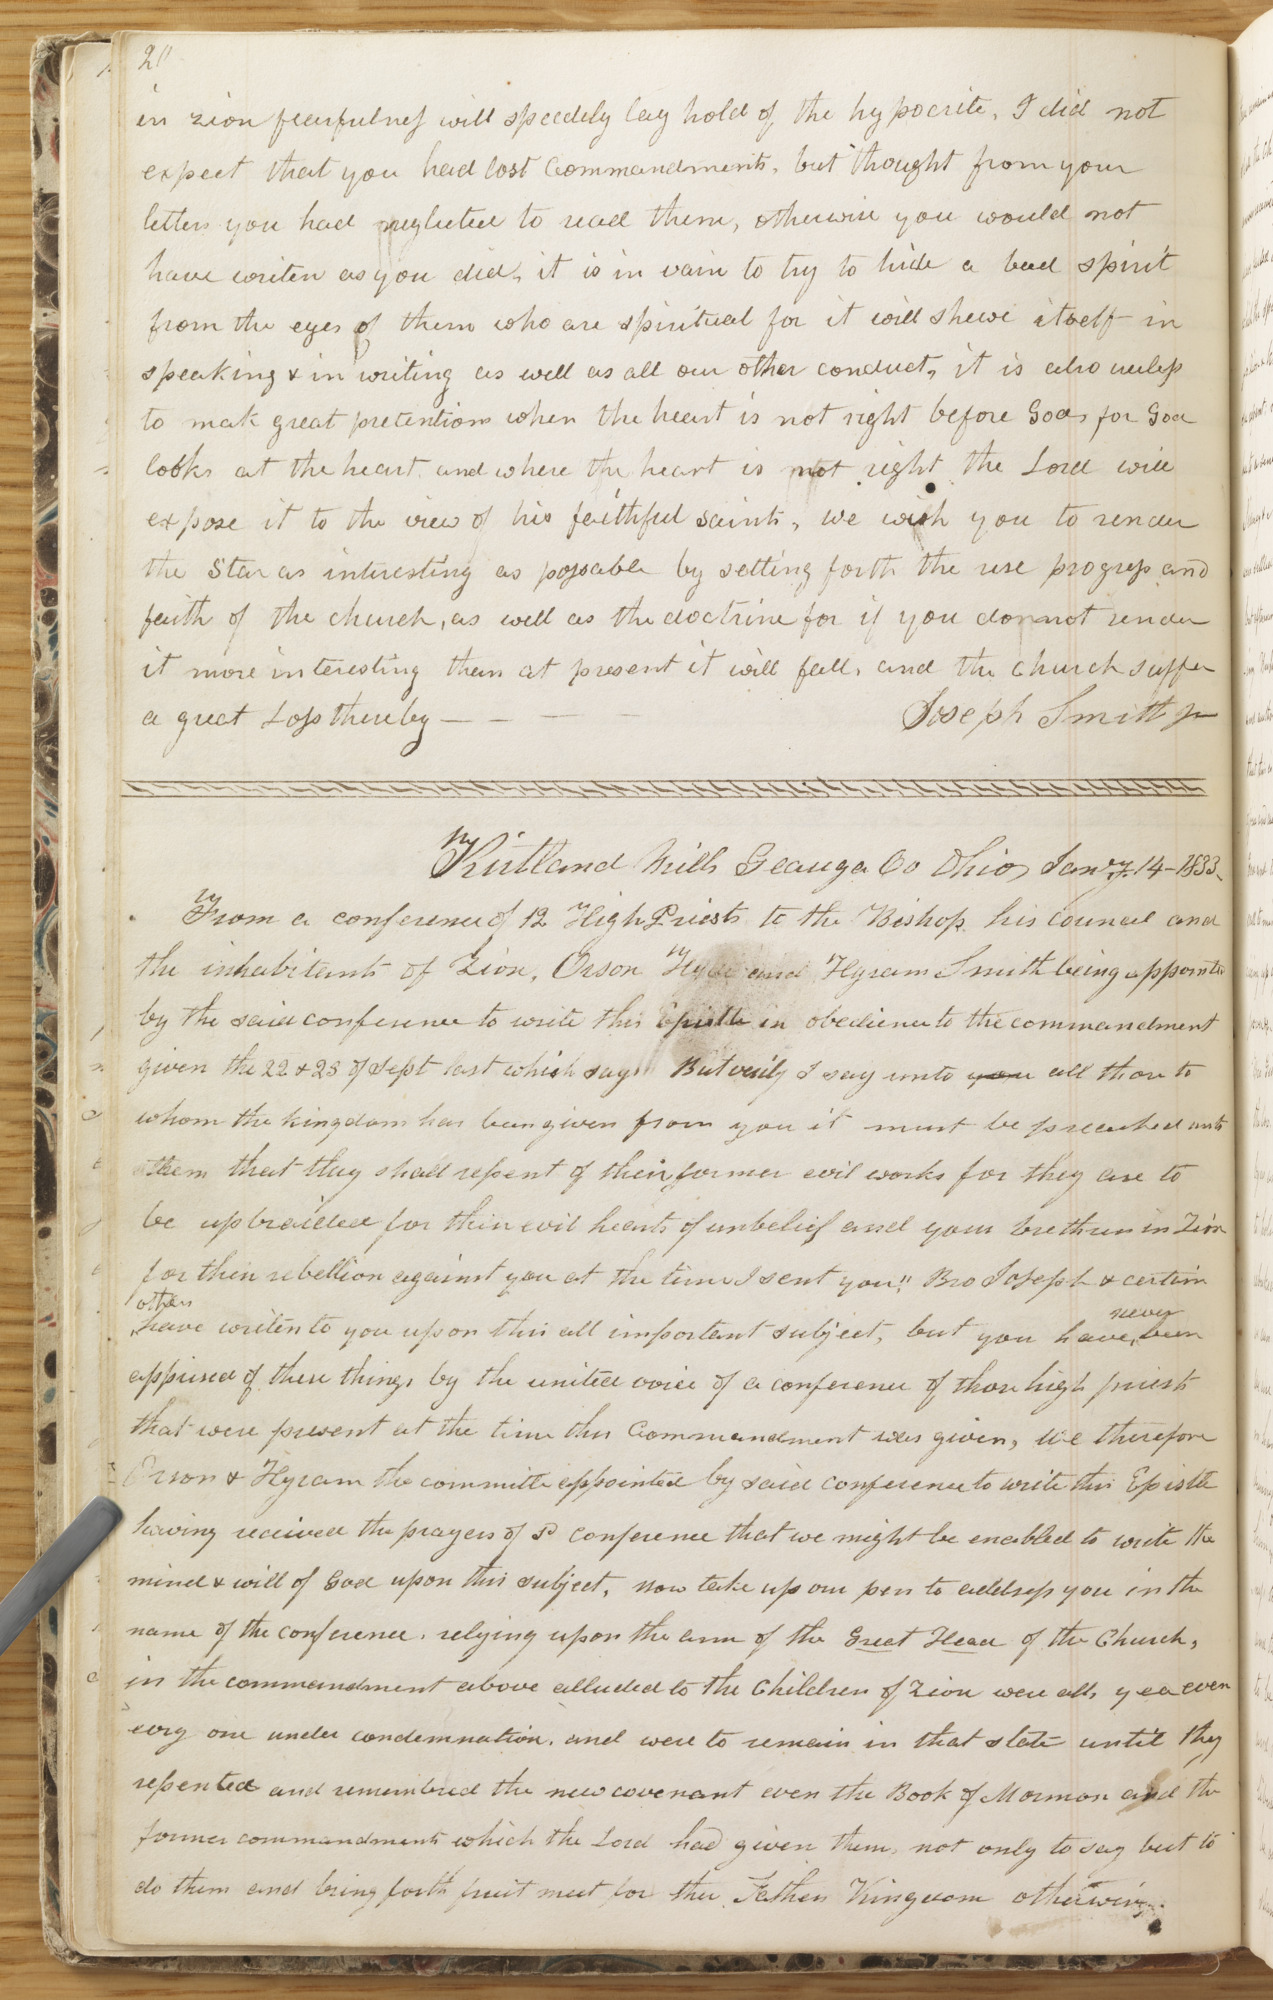 20
in zion fearfulness will speedely lay hold of the hypocrite, I did not
expect that you had lost Commandments, but thought from your
letters you had neglected to read them, otherwise you would not
have writen as you did, it is in vain to try to hide a bad spirit
from the eyes of them who are spiritual for it will shew itself in
speaking & in writing as well as all our other conduct, it is also useless
to mak great pretentions when the heart is not right before God, for God
looks at the heart, and where the heart is not right the Lord will
expose it to the view of his faithful saints, we wish you to render
the Star as interesting as possable by setting forth the rise progress and
faith of the church, as well as the doctrine for if you donnot render
it more interesting then at present it will fall, and the church suffer
a great Loss thereby — — — —
Joseph Smith Jr
Kirtland Mills Geauga Co Ohio, Janry. 14-1833.
From a conference of 12 High Priests to the Bishop his council and
the inhabitants of Zion, Orson Hyde and Hyram Smith being appointed
by the said conference to write this Epistle in obedience to the commandment
given the 22 & 23 of Sept last which says " But verily I say unto you all those to
whom the kingdom has been given from you it must be preached unto
them that they shall repent of their former evil works for they are to
be upbraided for their evil hearts of unbelief and your brethren in Zion
for their rebellion against you at the time I sent you" Bro Joseph & certain
others
have writen to you upon this all important subject, but you have never been
apprised of these things by the united voice of a conference of those high priests
that were present at the time this Commandment was given, We therefore
Orson & Hyram the committe appointed by said conference to write this Epistle
having received the prayers of sd conference that we might be enabled to write the
mind & will of God upon this subject, now take up our pen to address you in the
name of the conference, relying upon the arm of the Great Head of the Church,
in the commandment above alluded to the Children of Zion were all, yea even
evry one under condemnation, and were to remain in that state until they
repented and remembred the new covenant even the Book of Mormon and the
former commandments which the Lord had given them, not only to say but to
do them and bring forth fruit meet for the Fathers Kingdom otherwise